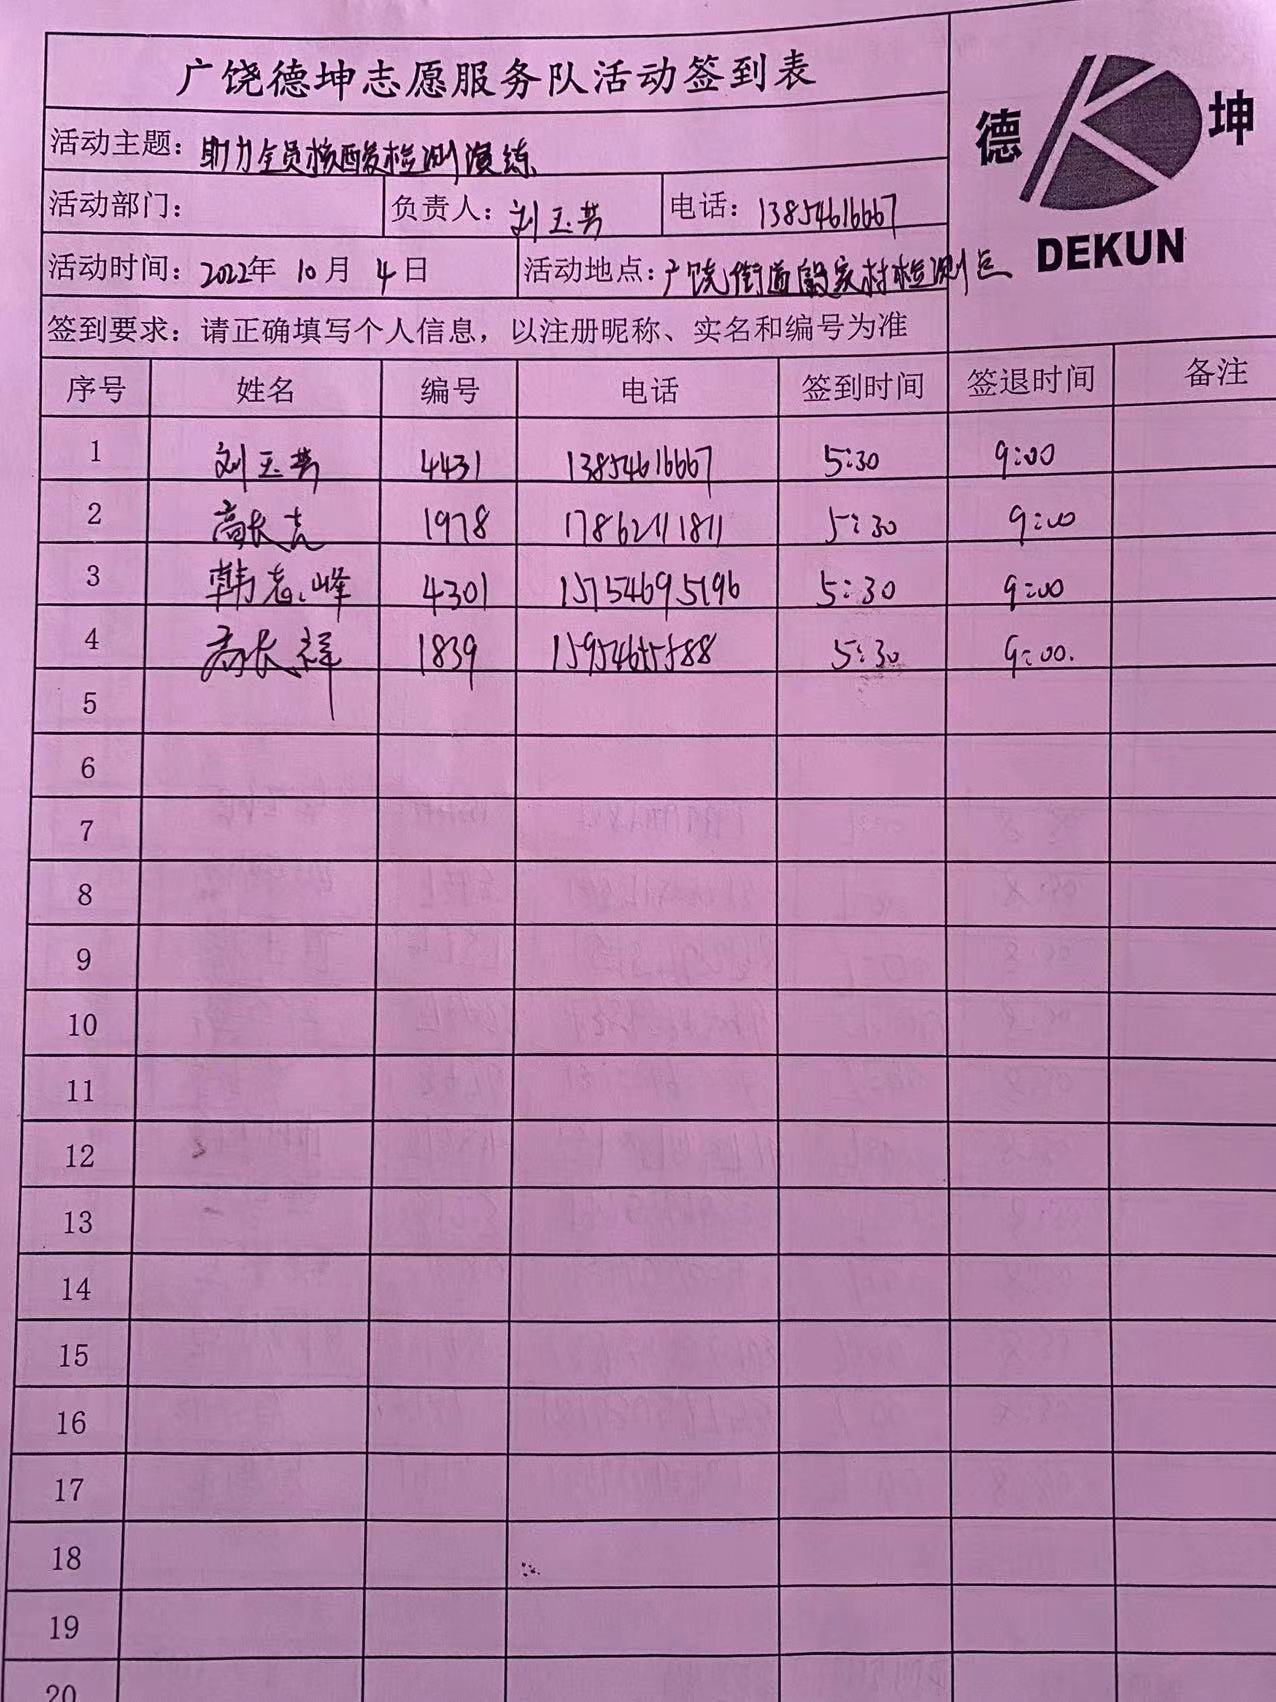 广饶德坤志愿服务队活动签到表
德 坤
DEKUN
活动主题：助力全员核酸检测演练
活动部门： 负责人：刘玉芳 电话：13854616667
活动时间：2022年 10月 4日 活动地点：广饶街道殷家村检测点
签到要求：请正确填写个人信息，以注册昵称、实名和编号为准
序号 姓名 编号 电话 签到时间 签退时间 备注
1 刘玉芳 4431 13854616667 5:30 9:00
2 高长 1978 17862111811 5:30 9:00
3 韩志峰 4301 15154695196 5:30 9:00
4 高长祥 1839 15954655588 5:30 9:00.
5
6
7
8
9
10
11
12
13
14
15
16
17
18
19
20